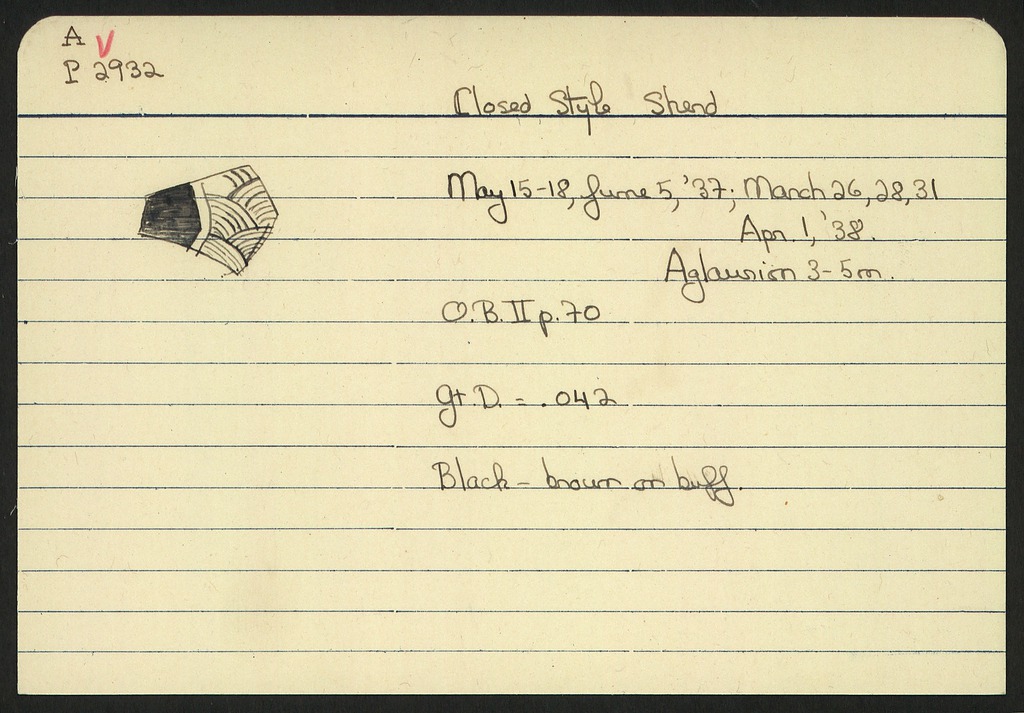 A V
P 2932
Closed Style Sherd
May 15-18, June 5, '37; March 26, 28, 31
Apr. 1, '38.
Aglaurion 3-5m.
O.B. II p. 70
Gt. D. = .042
Black-brown on buff.